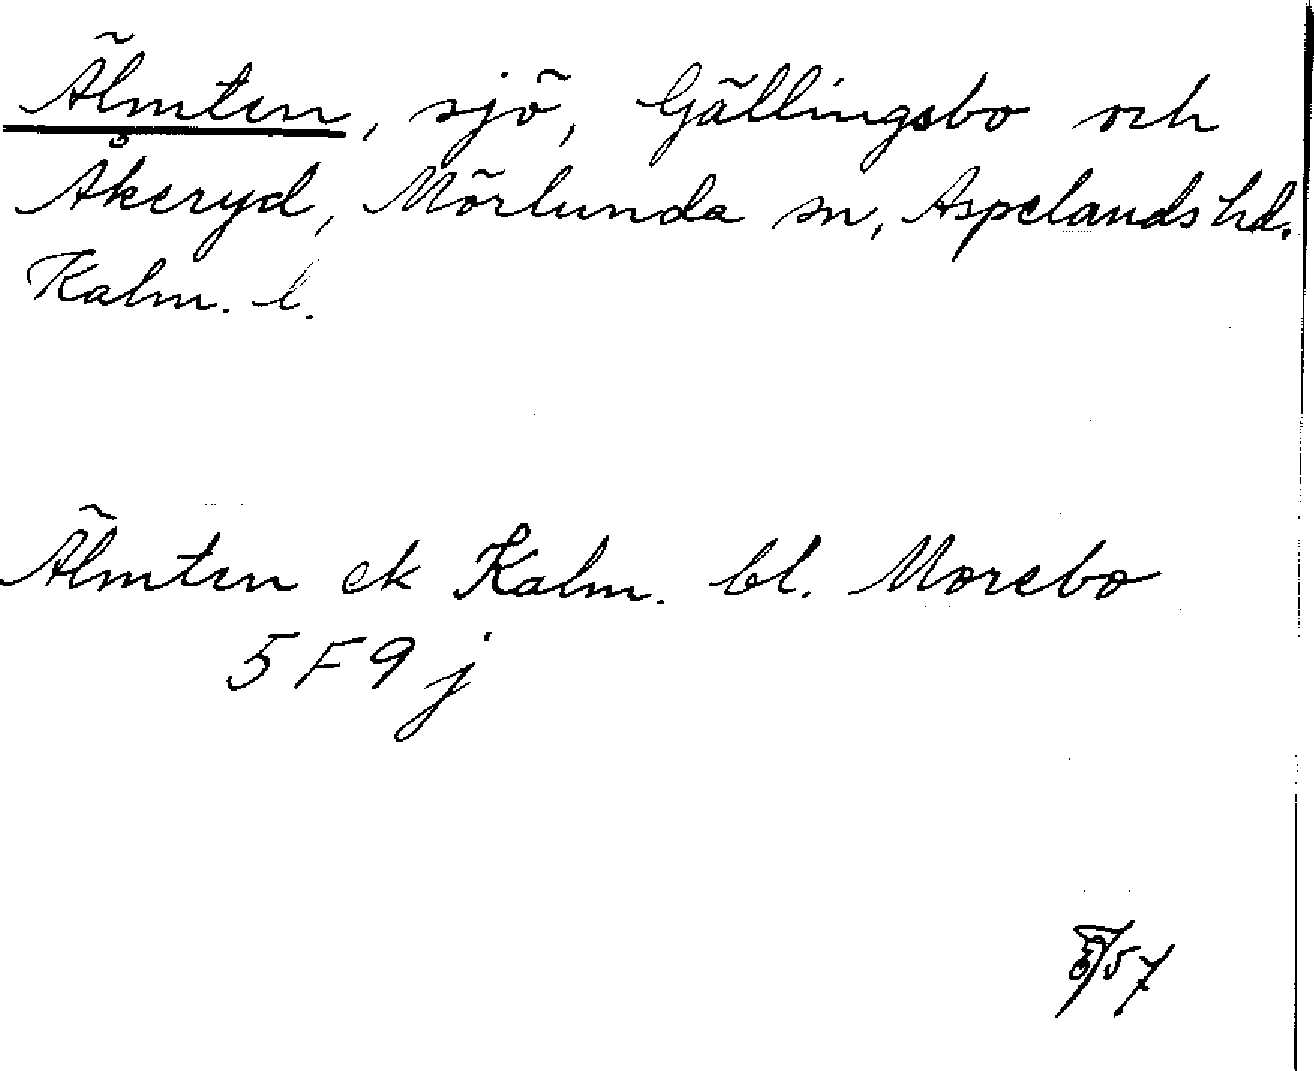 Älmten, sjö, Gällingsbo och
Åkeryd, Mörlunda sn, Aspelands hd.
Kalm. l.
Älmten ek Kalm. bl. Morebo
5F9j